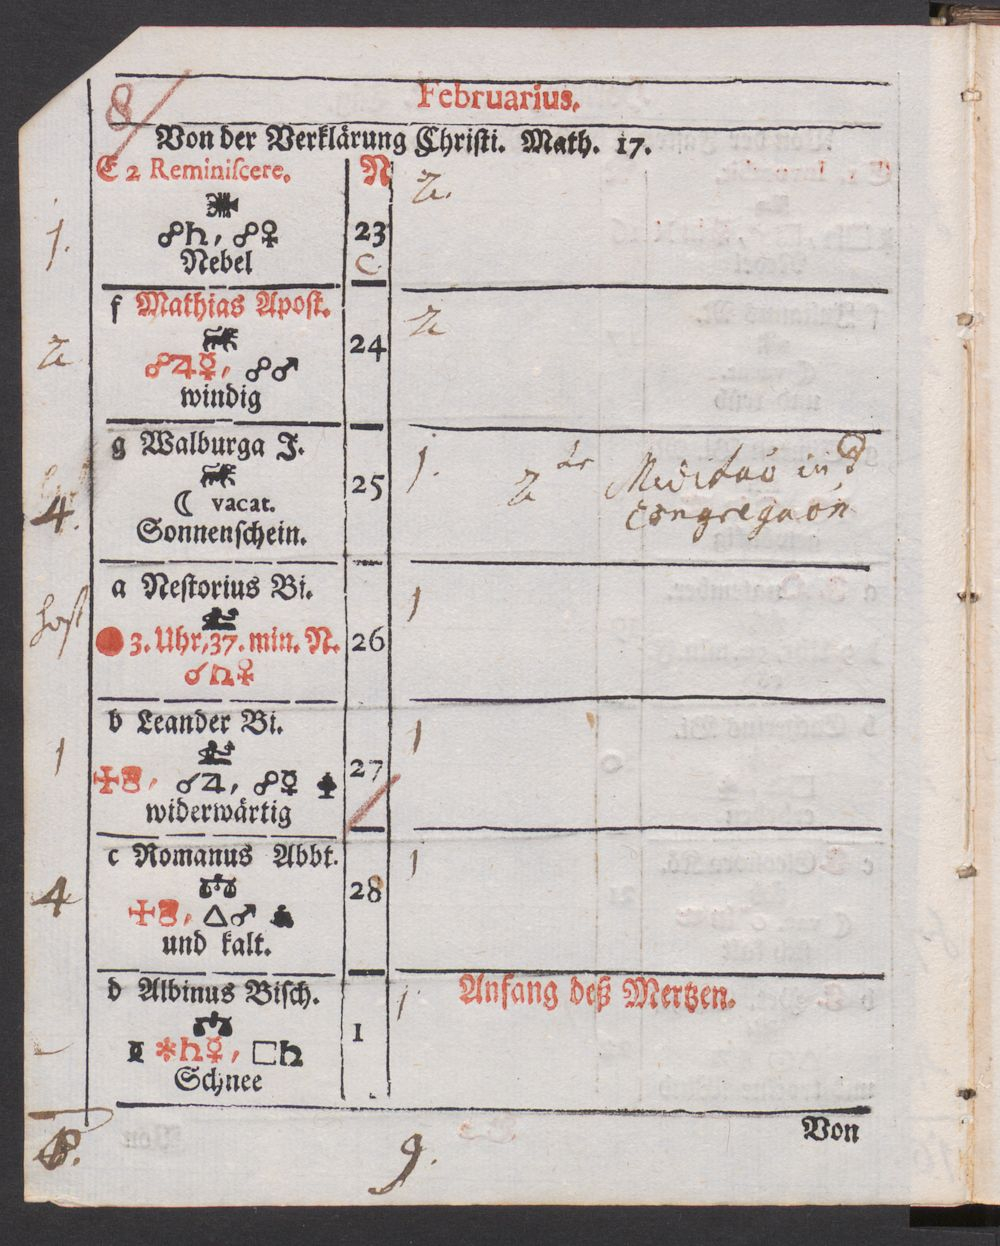 8
Februarius.
Von der Verklärung Christi. Math. 17.
E 2 Reminiscere. N 2.
1. ☍♄, ☍♀ 23
Nebel C
f Mathias Apost. 2
2 ☍♃☿, ☍♂ 24
windig
g Walburga J. 1.
4. ☾ vacat. 25 2 in
Sonnenschein.
a Nestorius Bi. 1
3. Uhr, 37. min. N. 26
☌♄♀
b Leander Bi. 1
1 ☌♃, ☍☿ 27
widerwärtig
c Romanus Abbt. 1
4 △♂ 28
und kalt.
d Albinus Bisch. 1 Anfang deß Mertzen.
⚹♄☿, □♄ 1
Schnee
Von
8. 9.